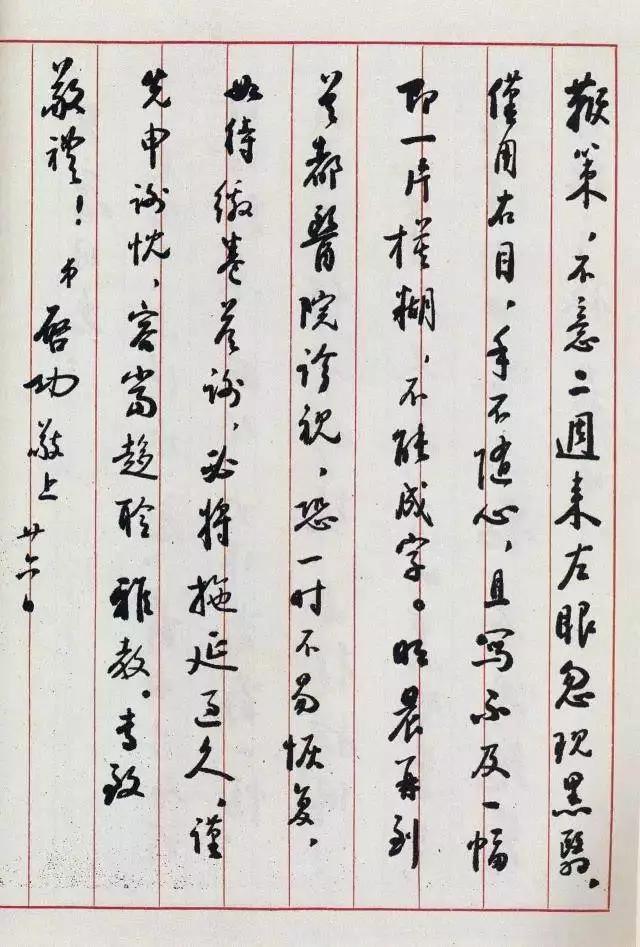 鞭策，不意二週来左眼忽现黑翳，
僅用右目，手不随心，且写不及一幅
即一片模糊，不能成字。明晨再到
首都醫院诊视，恐一时不易恢复，
如待缴卷答谢，必将拖延过久，谨
先申谢忱，容当趋聆雅教。专致
敬礼！弟启功敬上 廿六日